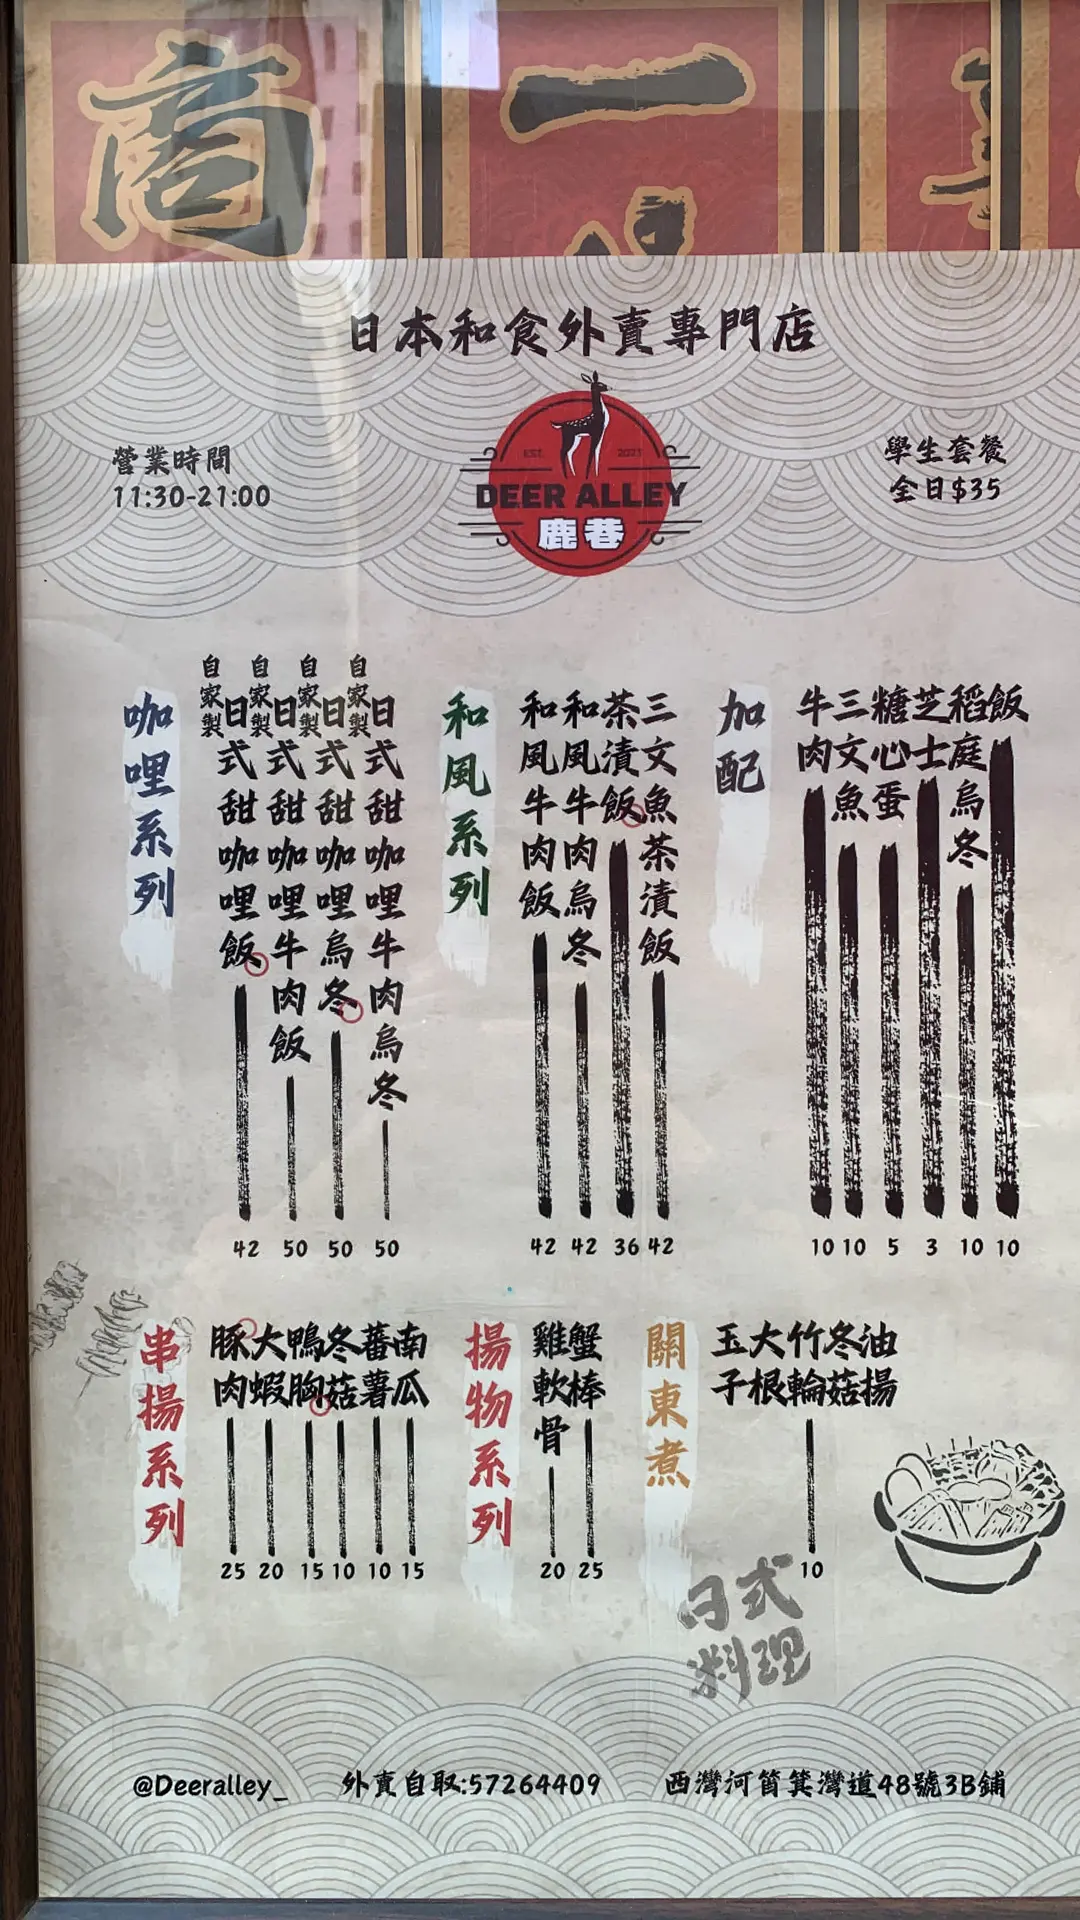 商
一
日本和食外賣專門店
營業時間
11:30-21:00
EST. 2023
DEER ALLEY
鹿巷
學生套餐
全日$35
咖哩系列
自家製日式甜咖哩飯 42
自家製日式甜咖哩牛肉飯 50
自家製日式甜咖哩烏冬 50
自家製日式甜咖哩牛肉烏冬 50
和風系列
和風牛肉飯 42
和風牛肉烏冬 42
茶漬飯 36
三文魚茶漬飯 42
加配
牛肉 10
三文魚 10
糖心蛋 5
芝士 3
稻庭烏冬 10
飯 10
串揚系列
豚肉 25
大蝦 20
鴨胸 15
冬菇 10
蕃薯 10
南瓜 15
揚物系列
雞軟骨 20
蟹棒 25
關東煮
玉子
大根
竹輪 10
冬菇
油揚
日式
料理
@Deeralley_
外賣自取:57264409
西灣河筲箕灣道48號3B鋪